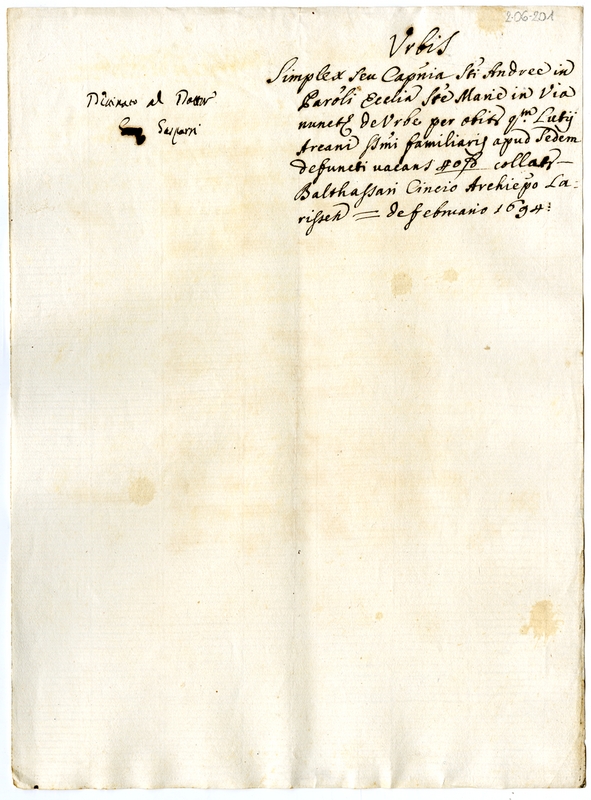 2-06-201
Urbis
Simplex seu Capnia Sti Andree in
Paroli Ecclia Ste Marie in Via
nuncte de Urbe per obitu qm Lutij
Arcani ssmi familiaris apud Sedem
defuncti vacans collats
Balthassari Cincio Archiepo La-
rissen = de februario 1694:
al Dottor
Gasparri